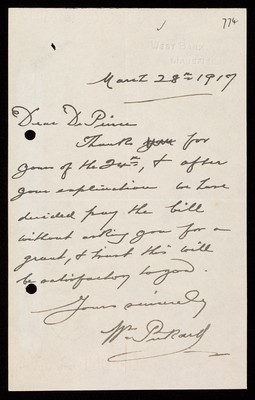 774
March 28th 1917
Dear Dr Peirce
Thanks for
yours of the 24th, & after
your explination we have
decided pay the bill
without asking you for a
grant, & trust this will
be satisfactory to you.
Yours sincerely
Wm Pickard